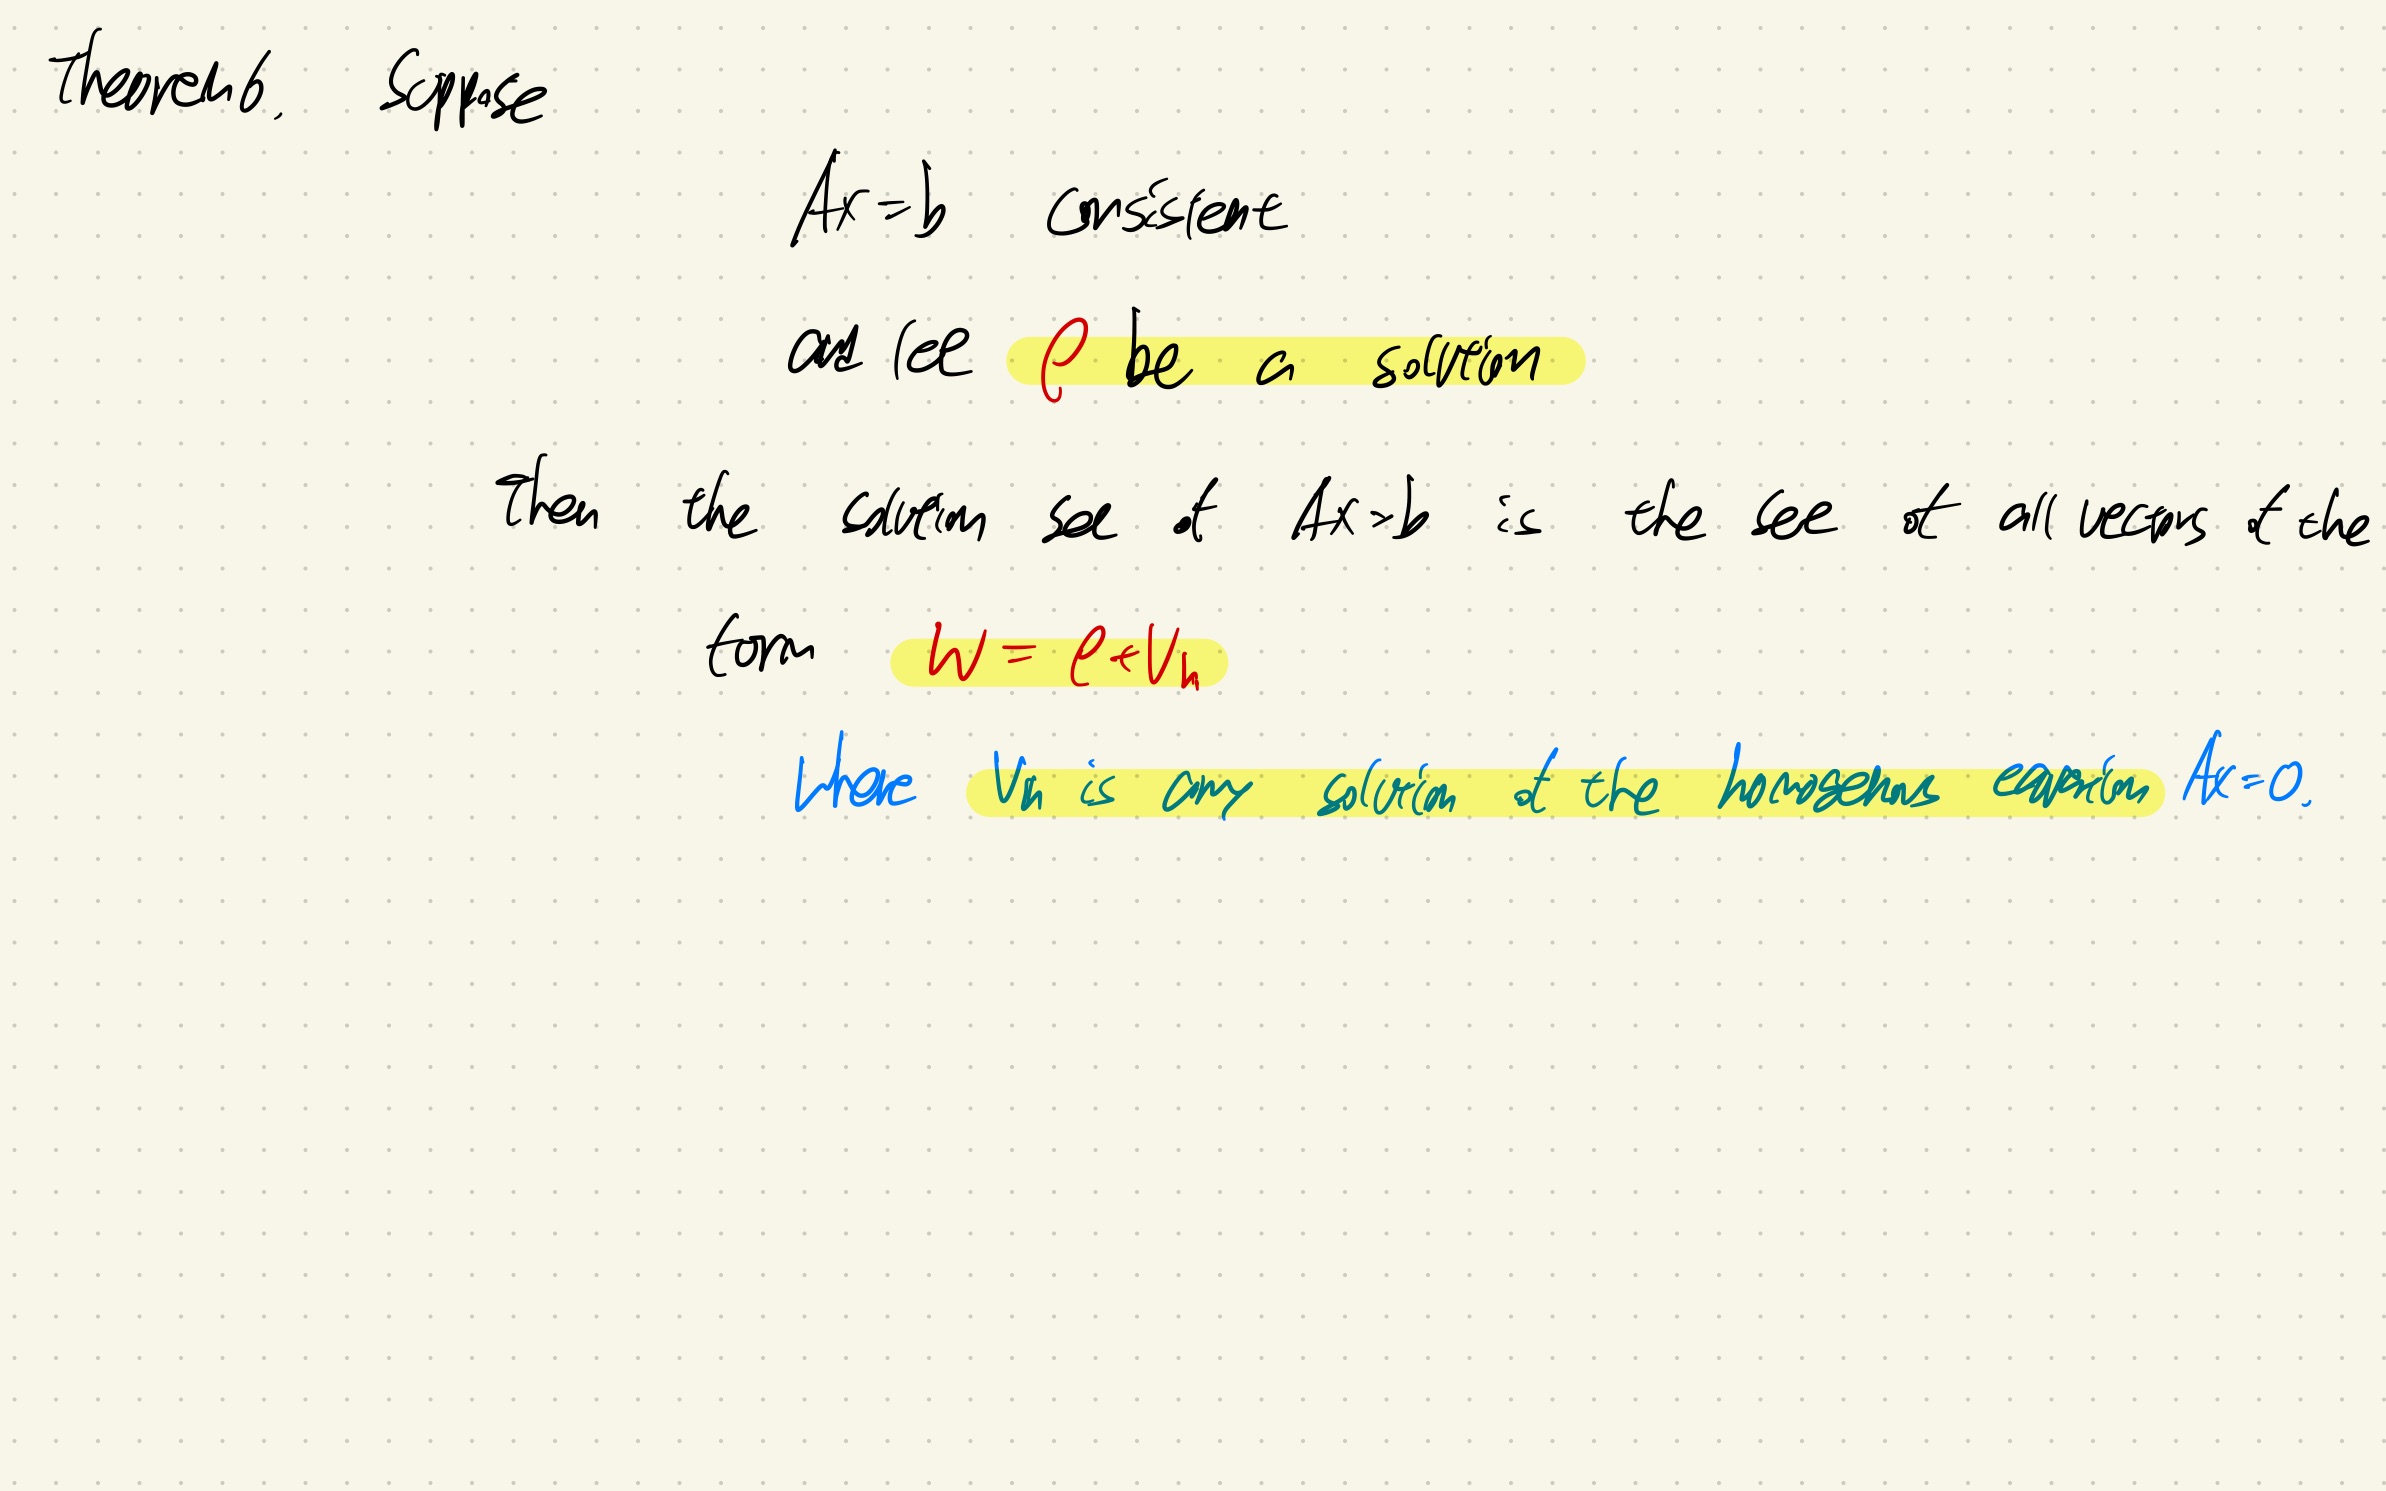 Theorem 6. Suppose
Ax=b consistent
and let p be a solution
Then the solution set of Ax=b is the set of all vectors of the
form w = p+Vh
where Vh is any solution of the homogenous equation Ax=0.